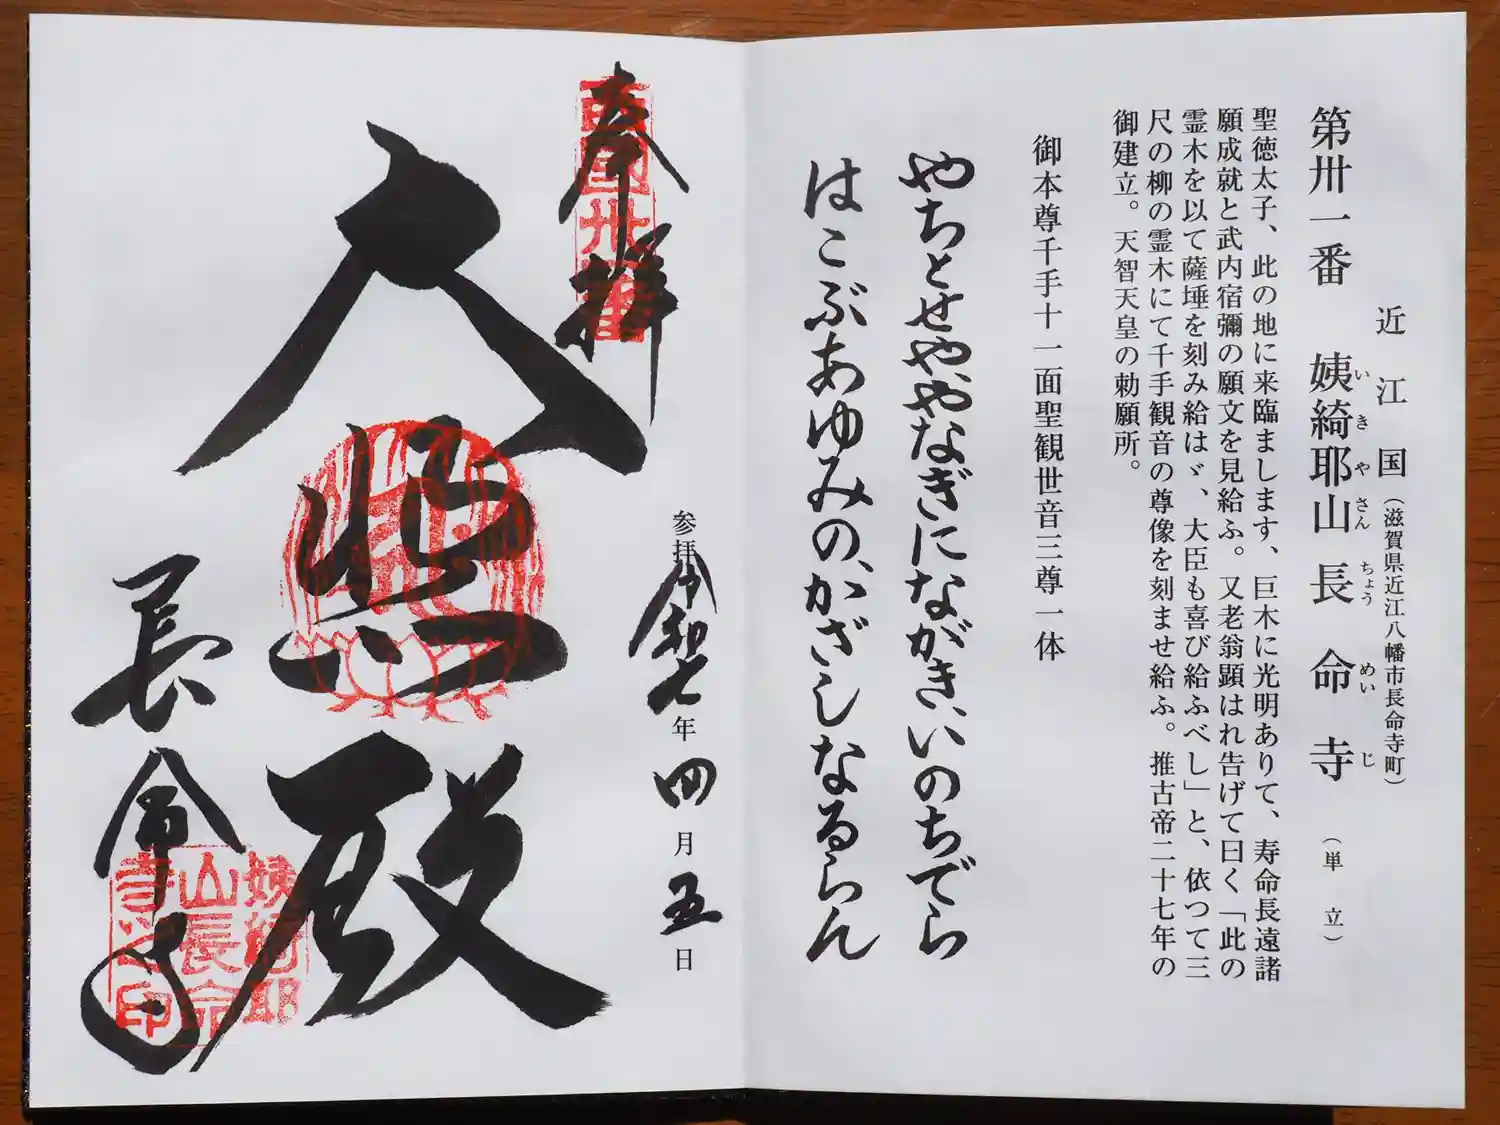 近江国（滋賀県近江八幡市長命寺町）
第卅一番 姨綺耶山長命寺（単立）
いきやさんちょうめいじ
聖徳太子、此の地に来臨まします、巨木に光明ありて、寿命長遠諸
願成就と武内宿彌の願文を見給ふ。又老翁顕はれ告げて曰く「此の
霊木を以て薩埵を刻み給はゞ、大臣も喜び給ふべし」と、依つて三
尺の柳の霊木にて千手観音の尊像を刻ませ給ふ。推古帝二十七年の
御建立。天智天皇の勅願所。
御本尊千手十一面聖観世音三尊一体
やちとせや、やなぎにながき、いのちでら
はこぶあゆみの、かざしなるらん
奉拝
西国卅一番
参拝令和七年四月五日
大悲殿
長命寺
姨綺耶
山長命
寺之印